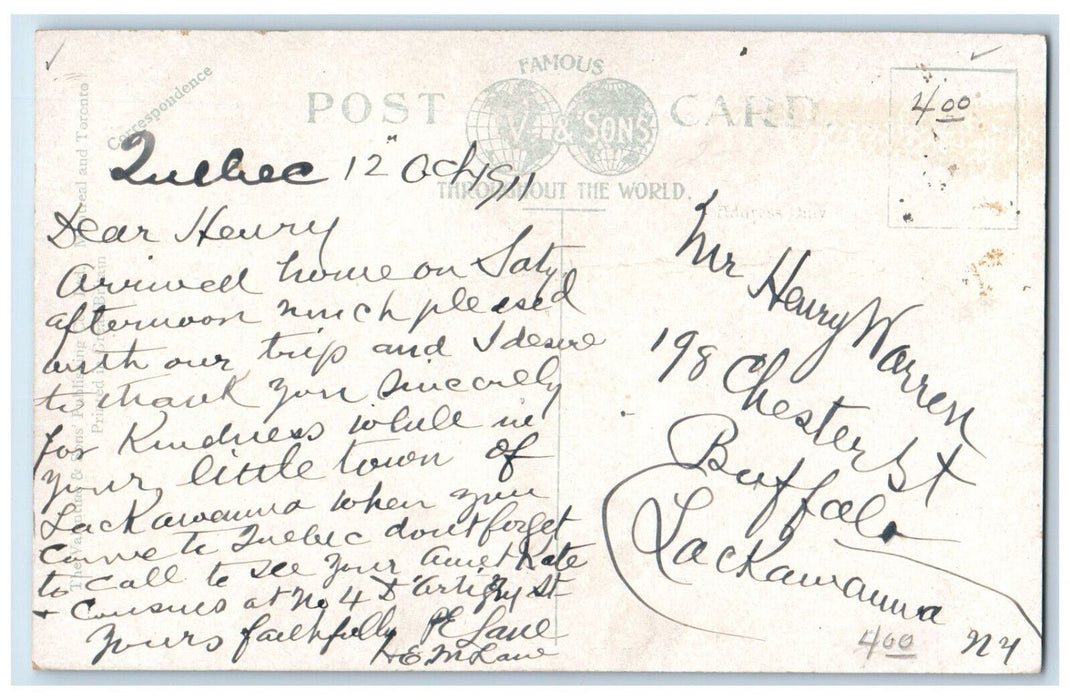 Correspondence
FAMOUS
POST CARD.
V. & SONS
THROUGHOUT THE WORLD.
Address Only
4 00
Quebec 12" Oct 1911
Dear Henry
Arrived home on Saty
afternoon much pleased
with our trip and I desire
to thank you sincerely
for Kindness while in
your little town of
Lackawanna when you
come to Quebec dont forget
to call to see your Aunt Kate
+ Cousins at No 4 D'artigny St
Yours faithfully PE Lane
+ E. M Lane
Mr Henry Warren
198 Chester St
Buffalo
Lackawanna
NY
4 00
The Valentine & Sons' Publishing Montreal and Toronto
Printed in Great Britain